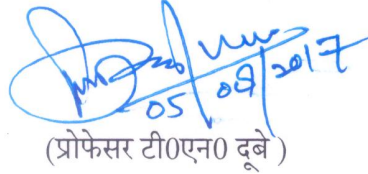 05/08/2017
(प्रोफेसर टी0एन0 दूबे )